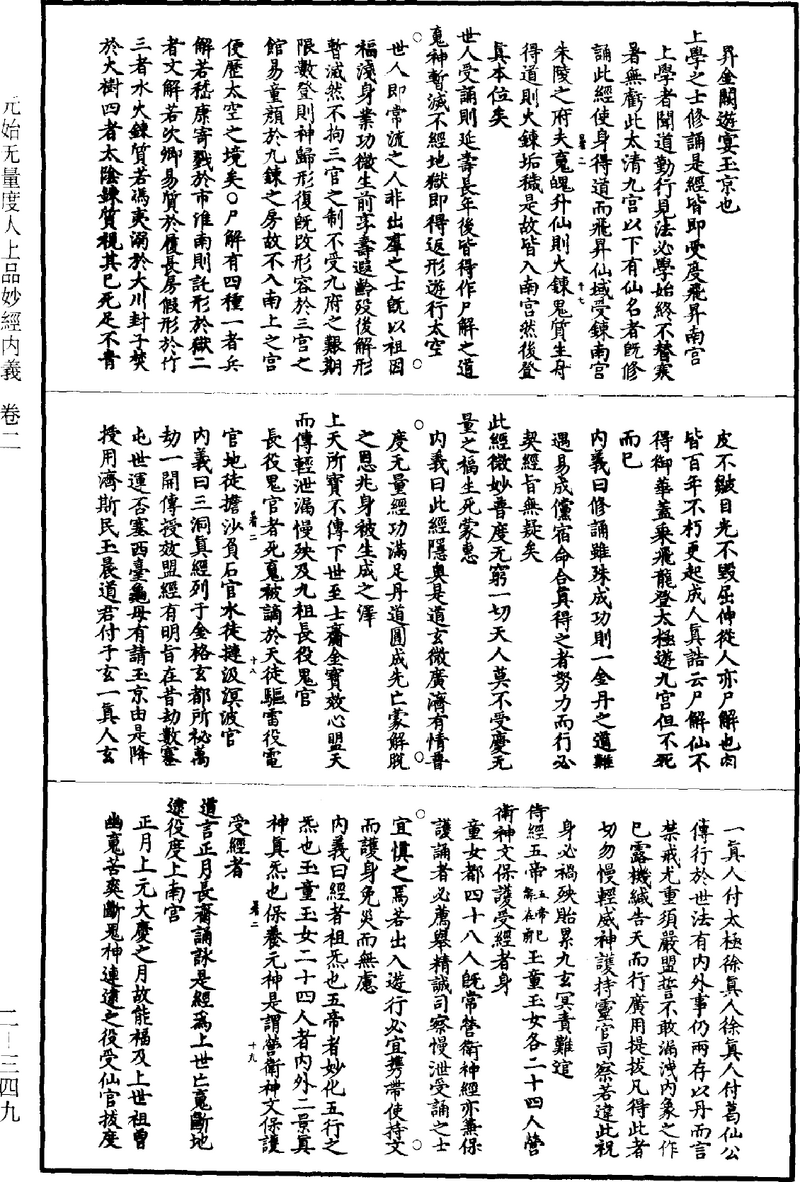 昇金闕遊宴玉京也
上學之士修誦是經皆即受度飛昇南宮
上學者聞道勤行見法必學始終不替寒
暑無虧此太清九宮以下有仙名者既修
誦此經使身得道而飛昇仙域受鍊南宮
朱陵之府夫䰟魄升仙則火鍊鬼質生身
得道則火鍊垢穢是故皆入南宮然後登
真本位矣
世人受誦則延壽長年後皆得作尸解之道
䰟神暫滅不經地獄即得返形遊行太空
世人即常流之人非出羣之士既以祖因
福淺身業功微生前享壽遐齡歿後解形
暫滅然不拘三官之制不受九府之艱期
限數登則神歸形復既改形容於三宮之
館易童顏於九鍊之房故不入南上之宮
便歷太空之境矣○尸解有四種一者兵
解若嵇康寄戮於市淮南則託形於獄二
者文解若次卿易質於履長房假形於竹
三者水火鍊質若馮夷溺於大川封子焚
於火樹四者太陰鍊質視其已死足不青
皮不皺目光不毀屈伸從人亦尸解也肉
皆百年不朽更起成人真誥云尸解仙不
得御華蓋乘飛龍登太極遊九宮但不死
而已
內義曰修誦雖殊成功則一金丹之道難
遇易成儻宿命合真得之者努力而行必
契經旨無疑矣
此經微妙普度无窮一切天人莫不受慶无
量之福生死蒙惠
內義曰此經隱奧是道玄微廣濟有情普
度无量經功滿足丹道圓成先亡蒙解脫
之恩兆身被生成之澤
上天所寶不傳下世至士齎金寶效心盟天
而傳輕泄漏慢殃及九祖長役鬼官
長役鬼官者死䰟被謫於天徒驅雷役電
官地徒擔沙負石官水徒摙汲溟波官
內義曰三洞真經列于金格玄都所祕萬
劫一開傳授效盟經有明旨在昔劫數蹇
屯世運否塞西臺龜母有請玉京由是降
授用濟斯民玉晨道君付于玄一真人玄
一真人付太極徐真人徐真人付葛仙公
傳行於世法有內外事仍兩存以丹而言
禁戒尤重須嚴盟誓不敢漏洩內象之作
已露機緘告天而行廣用提拔凡得此者
切勿慢輕威神護持靈官司察若違此祝
身必禍殃胎累九玄冥責難逭
侍經五帝五帝解在前已玉童玉女各二十四人營
衛神文保護受經者身
童女都四十八人既常營衛神經亦兼保
護誦者必薦舉精誠司察慢泄受誦之士
宜慎之焉若出入遊行必宜攜帶使持文
而護身免災而無慮
內義曰經者祖炁也五帝者妙化五行之
炁也玉童玉女二十四人者內外二景真
神真炁也保養元神是謂營衛神文保護
受經者
道言正月長齋誦詠是經為上世亡䰟斷地
逮役度上南宮
正月上元大慶之月故能福及上世祖曾
幽䰟苦爽斷鬼神連逮之役受仙官拔度
元始无量度人上品妙經內義 卷二
二—三四九